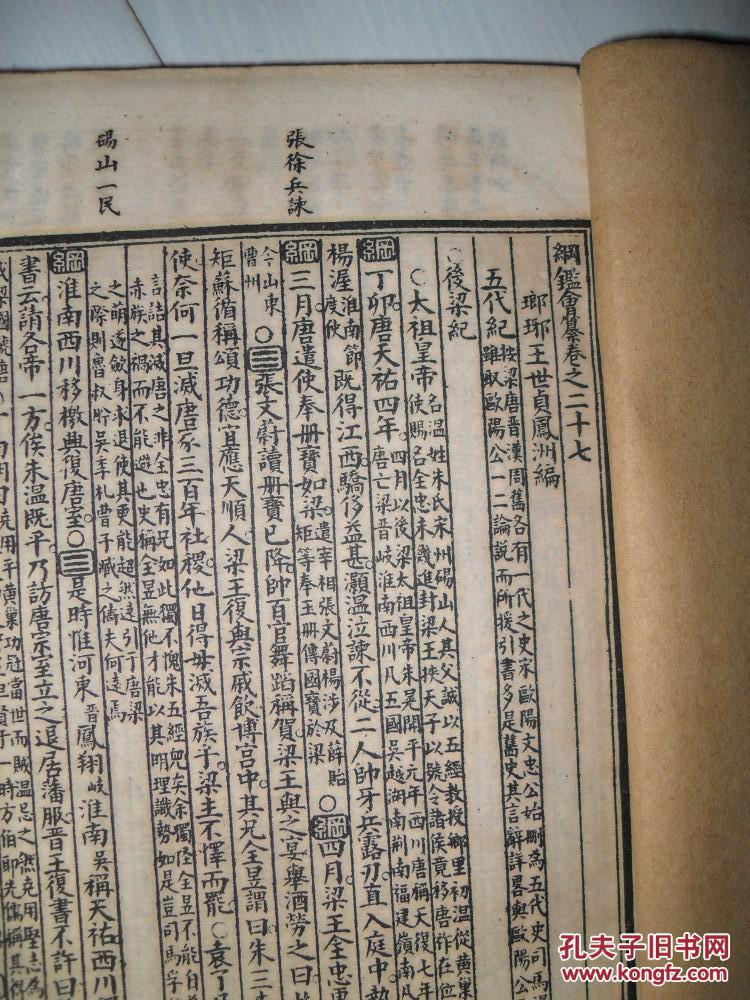 張徐兵諫
碭山一民
綱鑑會纂卷之二十七
瑯琊王世貞鳳洲編
五代紀
按梁唐晉漢周舊各有一代之史宋歐陽文忠公始刪為五代史司馬
雖取歐陽公一二論説而所援引書多是舊史其言辭詳畧與歐陽公
○後梁紀
○太祖皇帝
名温姓朱氏宋州碭山人其父誠以五經教授鄉里初温從黃巢
使賜名全忠未幾進封梁王挾天子以號令諸侯竟移唐祚在位
綱丁卯唐天祐四年
四月以後梁太祖皇帝朱晃開平元年西川唐稱天復七年
唐亡梁晉岐淮南西川凡五國吳越湖南荆南福建嶺南凡
楊渥
淮南節
度使
既得江西驕侈益甚灝温泣諫不從二人帥牙兵露刃直入庭中
綱三月唐遣使奉册寶如梁
遣宰相張文蔚楊涉及薛貽
矩等奉玉册傳國寶於梁
○綱四月梁王全忠更
今山東
曹州
○張文蔚讀册寶已降帥百官舞蹈稱賀梁王與之宴舉酒勞之曰
矩蘇循稱頌功德宜應天順人梁王復與宗戚飲博宮中其兄全昱謂曰朱三
使奈何一旦滅唐家三百年社稷他日得毋滅吾族乎梁主不懌而罷○袁了
言詰其滅唐之非全忠有兄如此獨不愧朱五經兒矣余獨怪全昱不能自
赤族之禍而不能避也史稱全昱無他才能以其明理識勢如是豈司馬孚
之萌遂斂身永退使其更能超然遠引于唐梁
之際則魯叔肸吳季札曹子臧之儔夫何遠焉
綱淮南西川移檄興復唐室○是時惟河東
晉
鳳翔
岐
淮南
吳
稱天祐西川
書云請各帝一方俟朱温既平乃訪唐宗室立之退居藩服晉王復書不許曰
克用平黃巢功冠當世而賊温忌之然克用堅志為
一時方伯耶先儒稱其得
孔夫子旧书网
www.kongfz.com